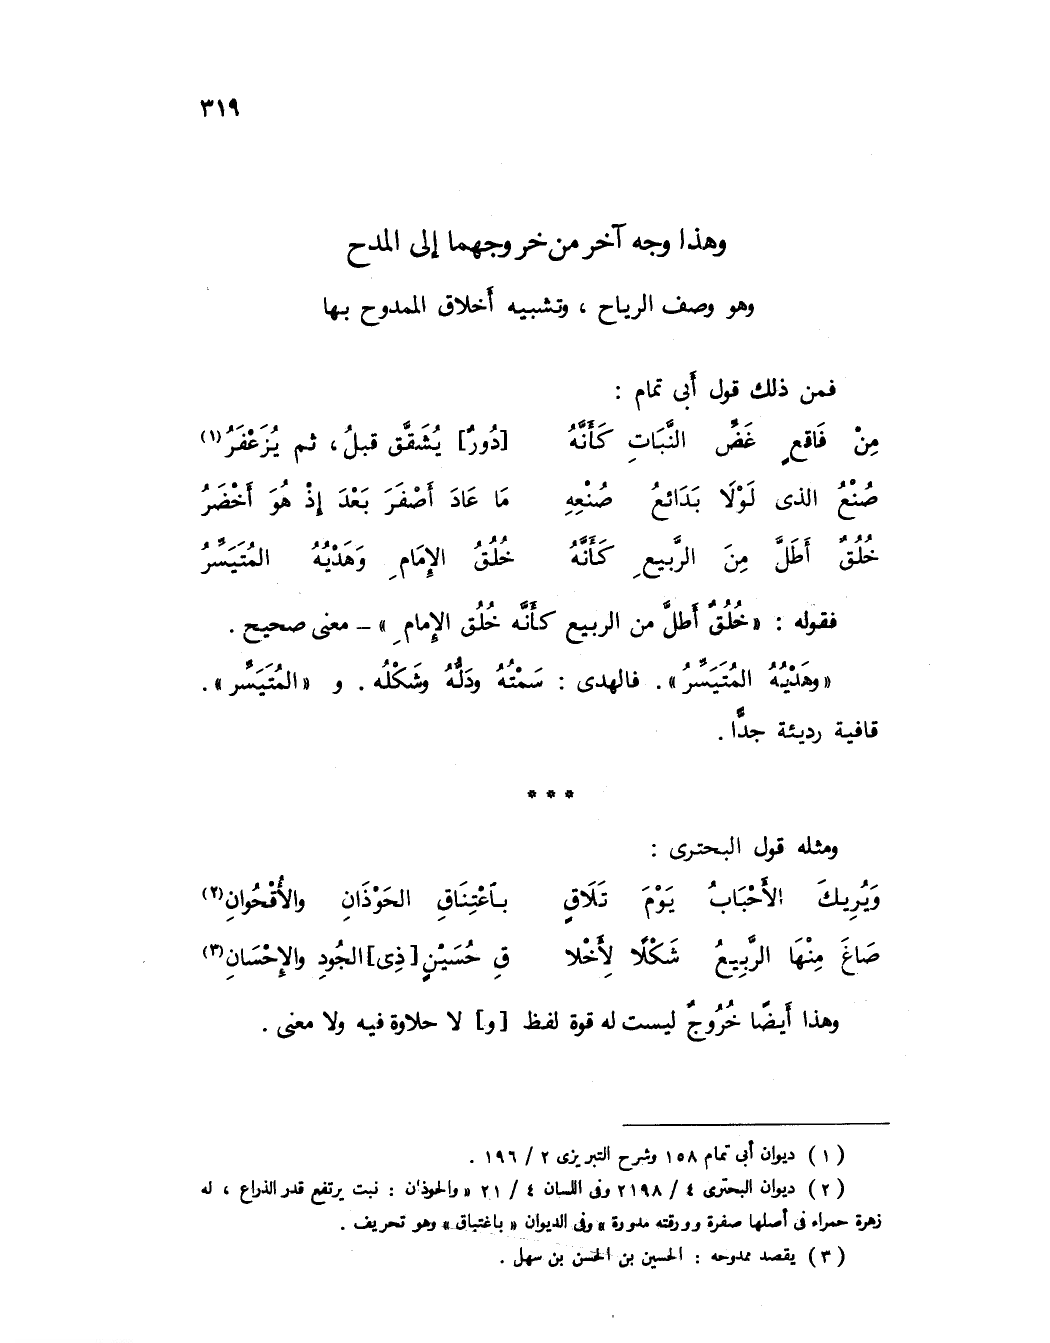 ٣١٩
وهذا وجه آخر من خروجهما إلى المدح
وهو وصف الرياح ، وتشبيه أَخلاق الممدوح بها
فمن ذلك قول أَبى تمام :
مِنْ فَاقعٍ غَضِّ النَّبَاتِ كَأَنَّهُ [دُورٌ] يُشَقَّق قبلُ، ثم يُزَعْفَرُ(١)
صُنْعُ الذى لَوْلَا بَدَائعُ صُنْعِهِ مَا عَادَ أَصْفَرَ بَعْدَ إِذْ هُوَ أَخْضَرُ
خُلُقٌ أَطَلَّ مِنَ الرَّبيعِ كَأَنَّهُ خُلُقُ الإِمَامِ وَهَدْيُهُ المُتَيَسِّرُ
فقوله : «خُلُقٌ أَطلَّ من الربيع كأَنَّه خُلُق الإِمامِ» – معنى صحيح .
«وهَدْيُهُ المُتَيَسِّرُ» . فالهدى : سَمْتُهُ ودَلُّهُ وشَكْلُه . و «المُتَيَسِّر» .
قافية رديئة جدًّا .
* * *
ومثله قول البحترى :
وَيُرِيكَ الأَحْبَابُ يَوْمَ تَلَاقٍ بِاَعْتِنَاقِ الحَوْذَانِ والأُقْحُوانِ(٢)
صَاغَ مِنْهَا الرَّبِيعُ شَكْلًا لِأَخْلا قِ حُسَيْنٍ [ذِى] الجُودِ والإِحْسَانِ(٣)
وهذا أَيضًا خُرُوجٌ ليست له قوة لفظ [و] لا حلاوة فيه ولا معنى .
(١) ديوان أبى تمام ١٥٨ وشرح التبريزى ٢ / ١٩٦ .
(٢) ديوان البحترى ٤ / ٢١٩٨ وفى اللسان ٤ / ٢١ «والحوذان : نبت يرتفع قدر الذراع ، له
زهرة حمراء فى أصلها صفرة وورقته مدورة» وفى الديوان «باغتباق» وهو تحريف .
(٣) يقصد ممدوحه : الحسين بن الحسن بن سهل .